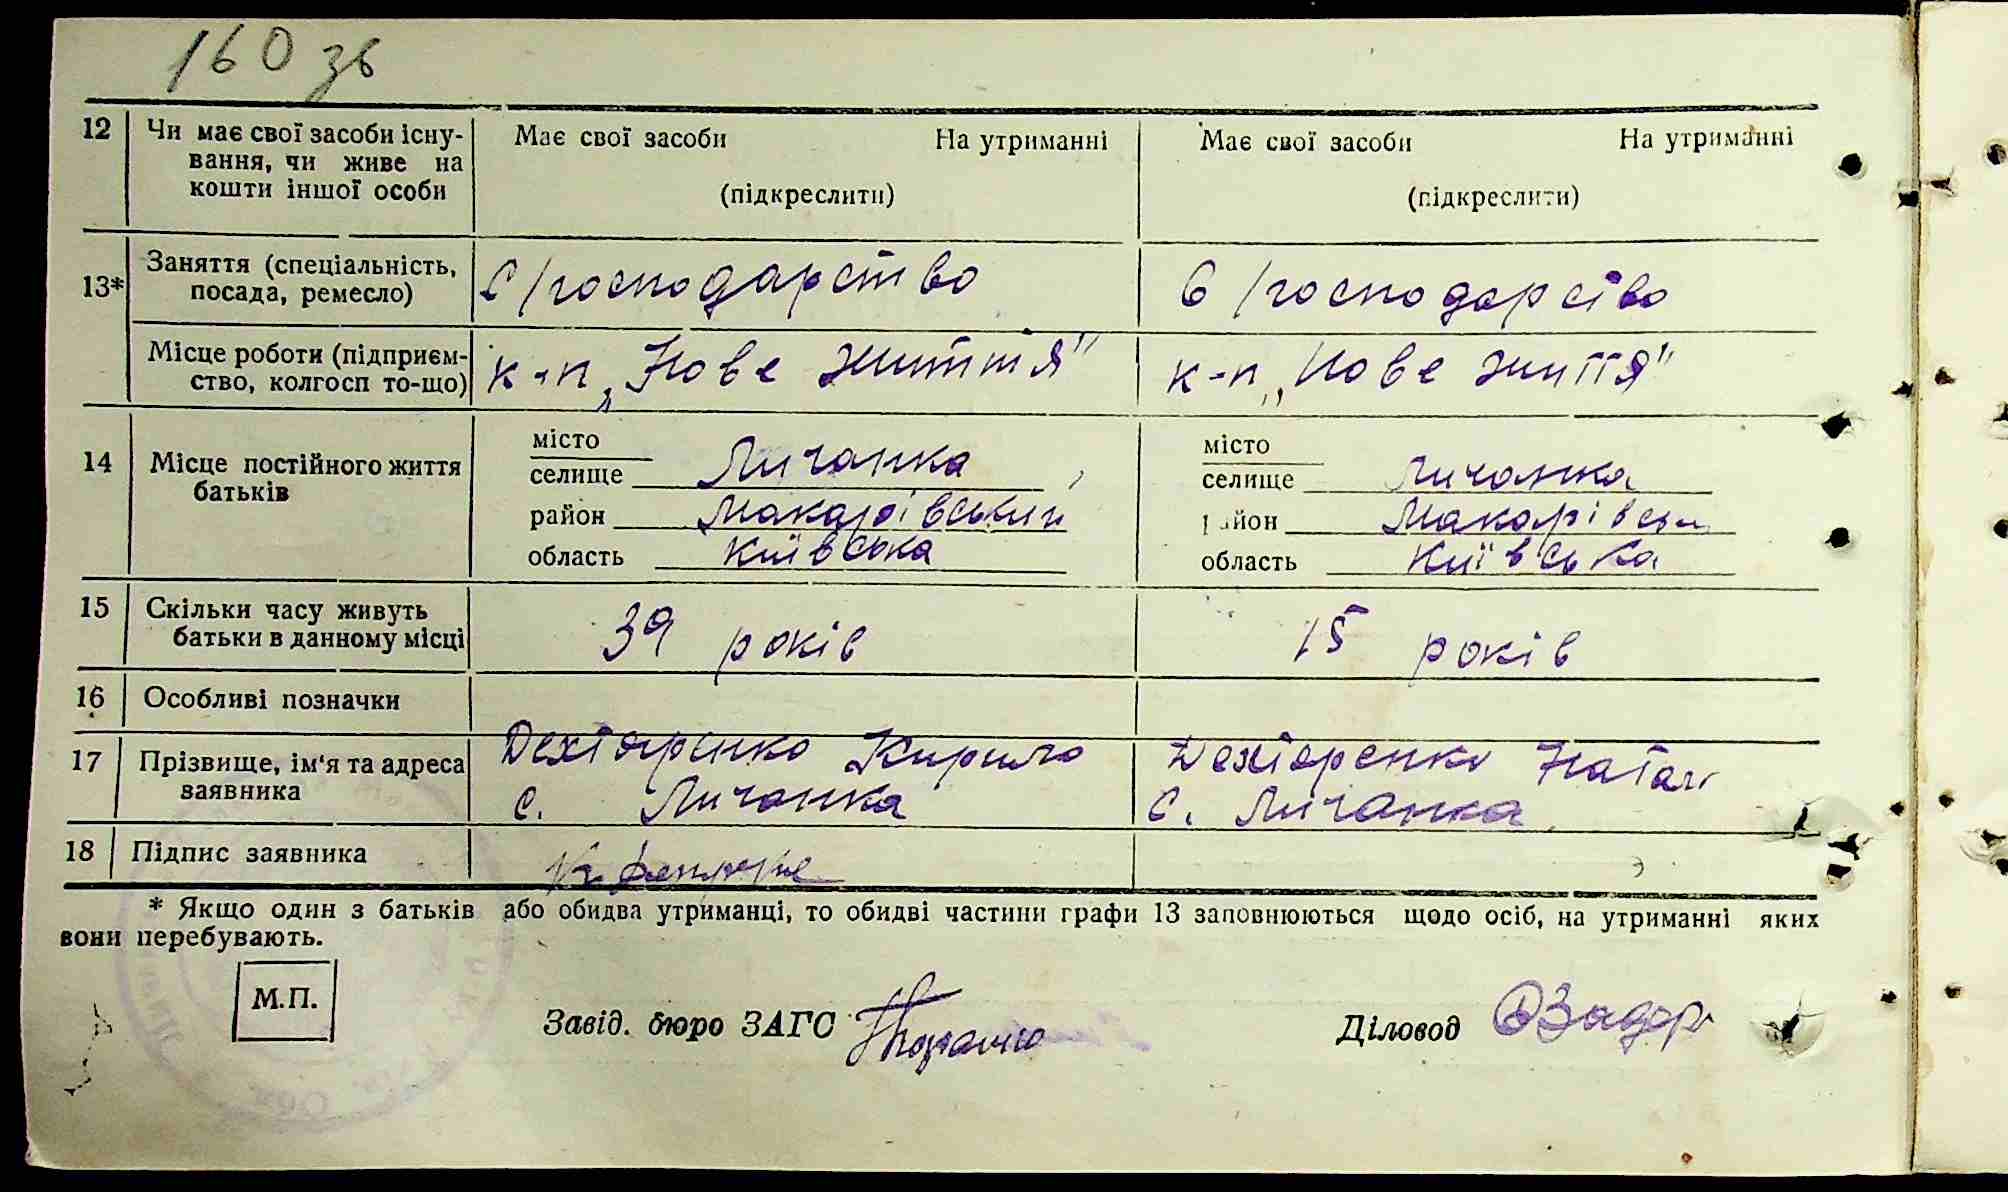 160 зв
12 Чи має свої засоби існу- Має свої засоби На утриманні Має свої засоби На утриманні
вання, чи живе на
кошти іншої особи (підкреслити) (підкреслити)
13* Заняття (спеціальність, С/господарство С/господарство
посада, ремесло)
Місце роботи (підприєм- к-п „Нове життя" к-п „Нове життя"
ство, колгосп то-що)
14 Місце постійного життя місто місто
батьків селище Личанка селище Личанка
район Макарівський район Макарівськ
область Київська область Київська
15 Скільки часу живуть 39 років 15 років
батьки в данному місці
16 Особливі позначки
17 Прізвище, ім'я та адреса Дехтяренко Кирило Дехтяренко Натал
заявника с. Личанка с. Личанка
18 Підпис заявника
* Якщо один з батьків або обидва утриманці, то обидві частини графи 13 заповнюються щодо осіб, на утриманні яких
вони перебувають.
М.П.
Завід. бюро ЗАГС Діловод